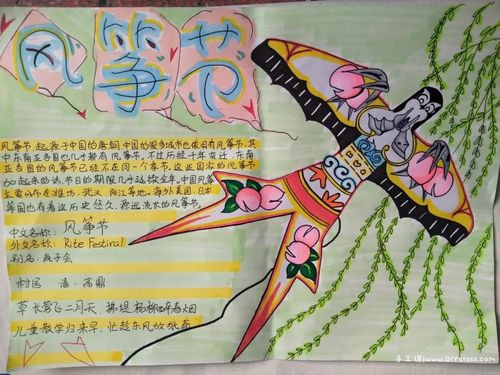 风筝节
风筝节，起源于中国的唐朝，中国的很多城市也依旧有风筝节，其
中东南亚各国也几乎都有风筝节。不过历经千年变迁，东南
亚各国的风筝节已经不在同一个季节，这些国家的风筝节
加起来的法定节日的期限几乎达数全年。中国风筝节
主要分布在潍坊、武汉、阳江等地。海外美国、日本
等国也有着这历史悠久、源远流长的风筝节。
中文名称：风筝节
外文名称：Kite Festiral
别名：燕子会
村居
清·高鼎
草长莺飞二月天，拂堤杨柳醉春烟
儿童散学归来早，忙趁东风放纸鸢
手工课|www.DIYclass.com